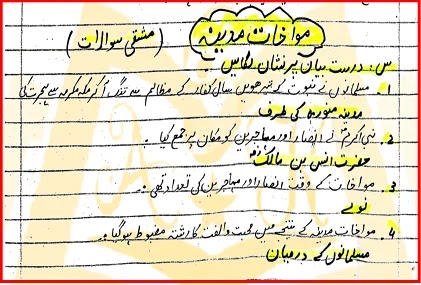 مواخات مدینہ
(مشقی سوالات)
س: درست بیان پر نشان لگائیں
1. مسلمانوں نے نبوت کے تیرھویں سال کفار کے مظالم سے تنگ آکر مکہ مکرمہ سے ہجرت کی
مدینہ منورہ کی طرف
2. نبی اکرمؐ نے انصار اور مہاجرین کو مکان پر جمع کیا۔
حضرت انس بن مالکؓ
3. مواخات کے وقت انصار اور مہاجرین کی تعداد تھی۔
نوے
4. مواخات مدینہ کے نتیجے میں محبت والفت کا رشتہ مضبوط ہوگیا۔
مسلمانوں کے درمیان